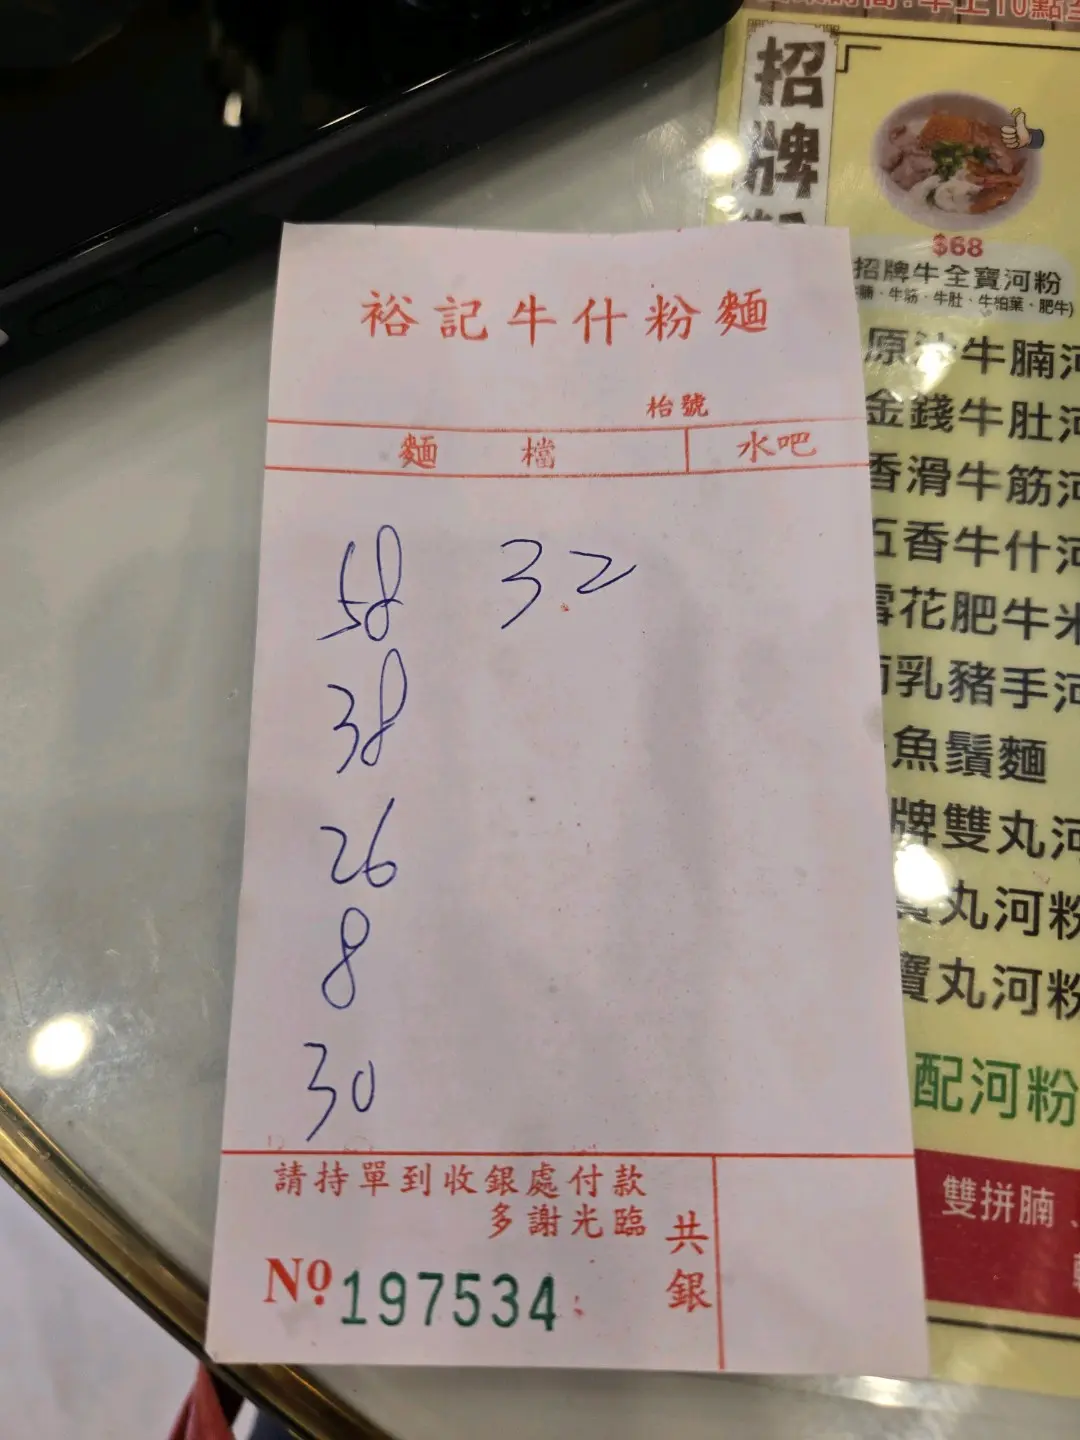 裕記牛什粉麵
枱號
麵 檔 水吧
58 32
38
26
8
30
請持單到收銀處付款
多謝光臨
共銀
Nº 197534
招牌
$68
招牌牛全寶河粉
牛筋、牛肚、牛柏葉、肥牛)
牛腩河
金錢牛肚河
香滑牛筋河
五香牛什河
雪花肥牛米
南乳豬手河
魚鬚麵
牌雙丸河
丸河粉
寶丸河粉
配河粉
雙拼腩、